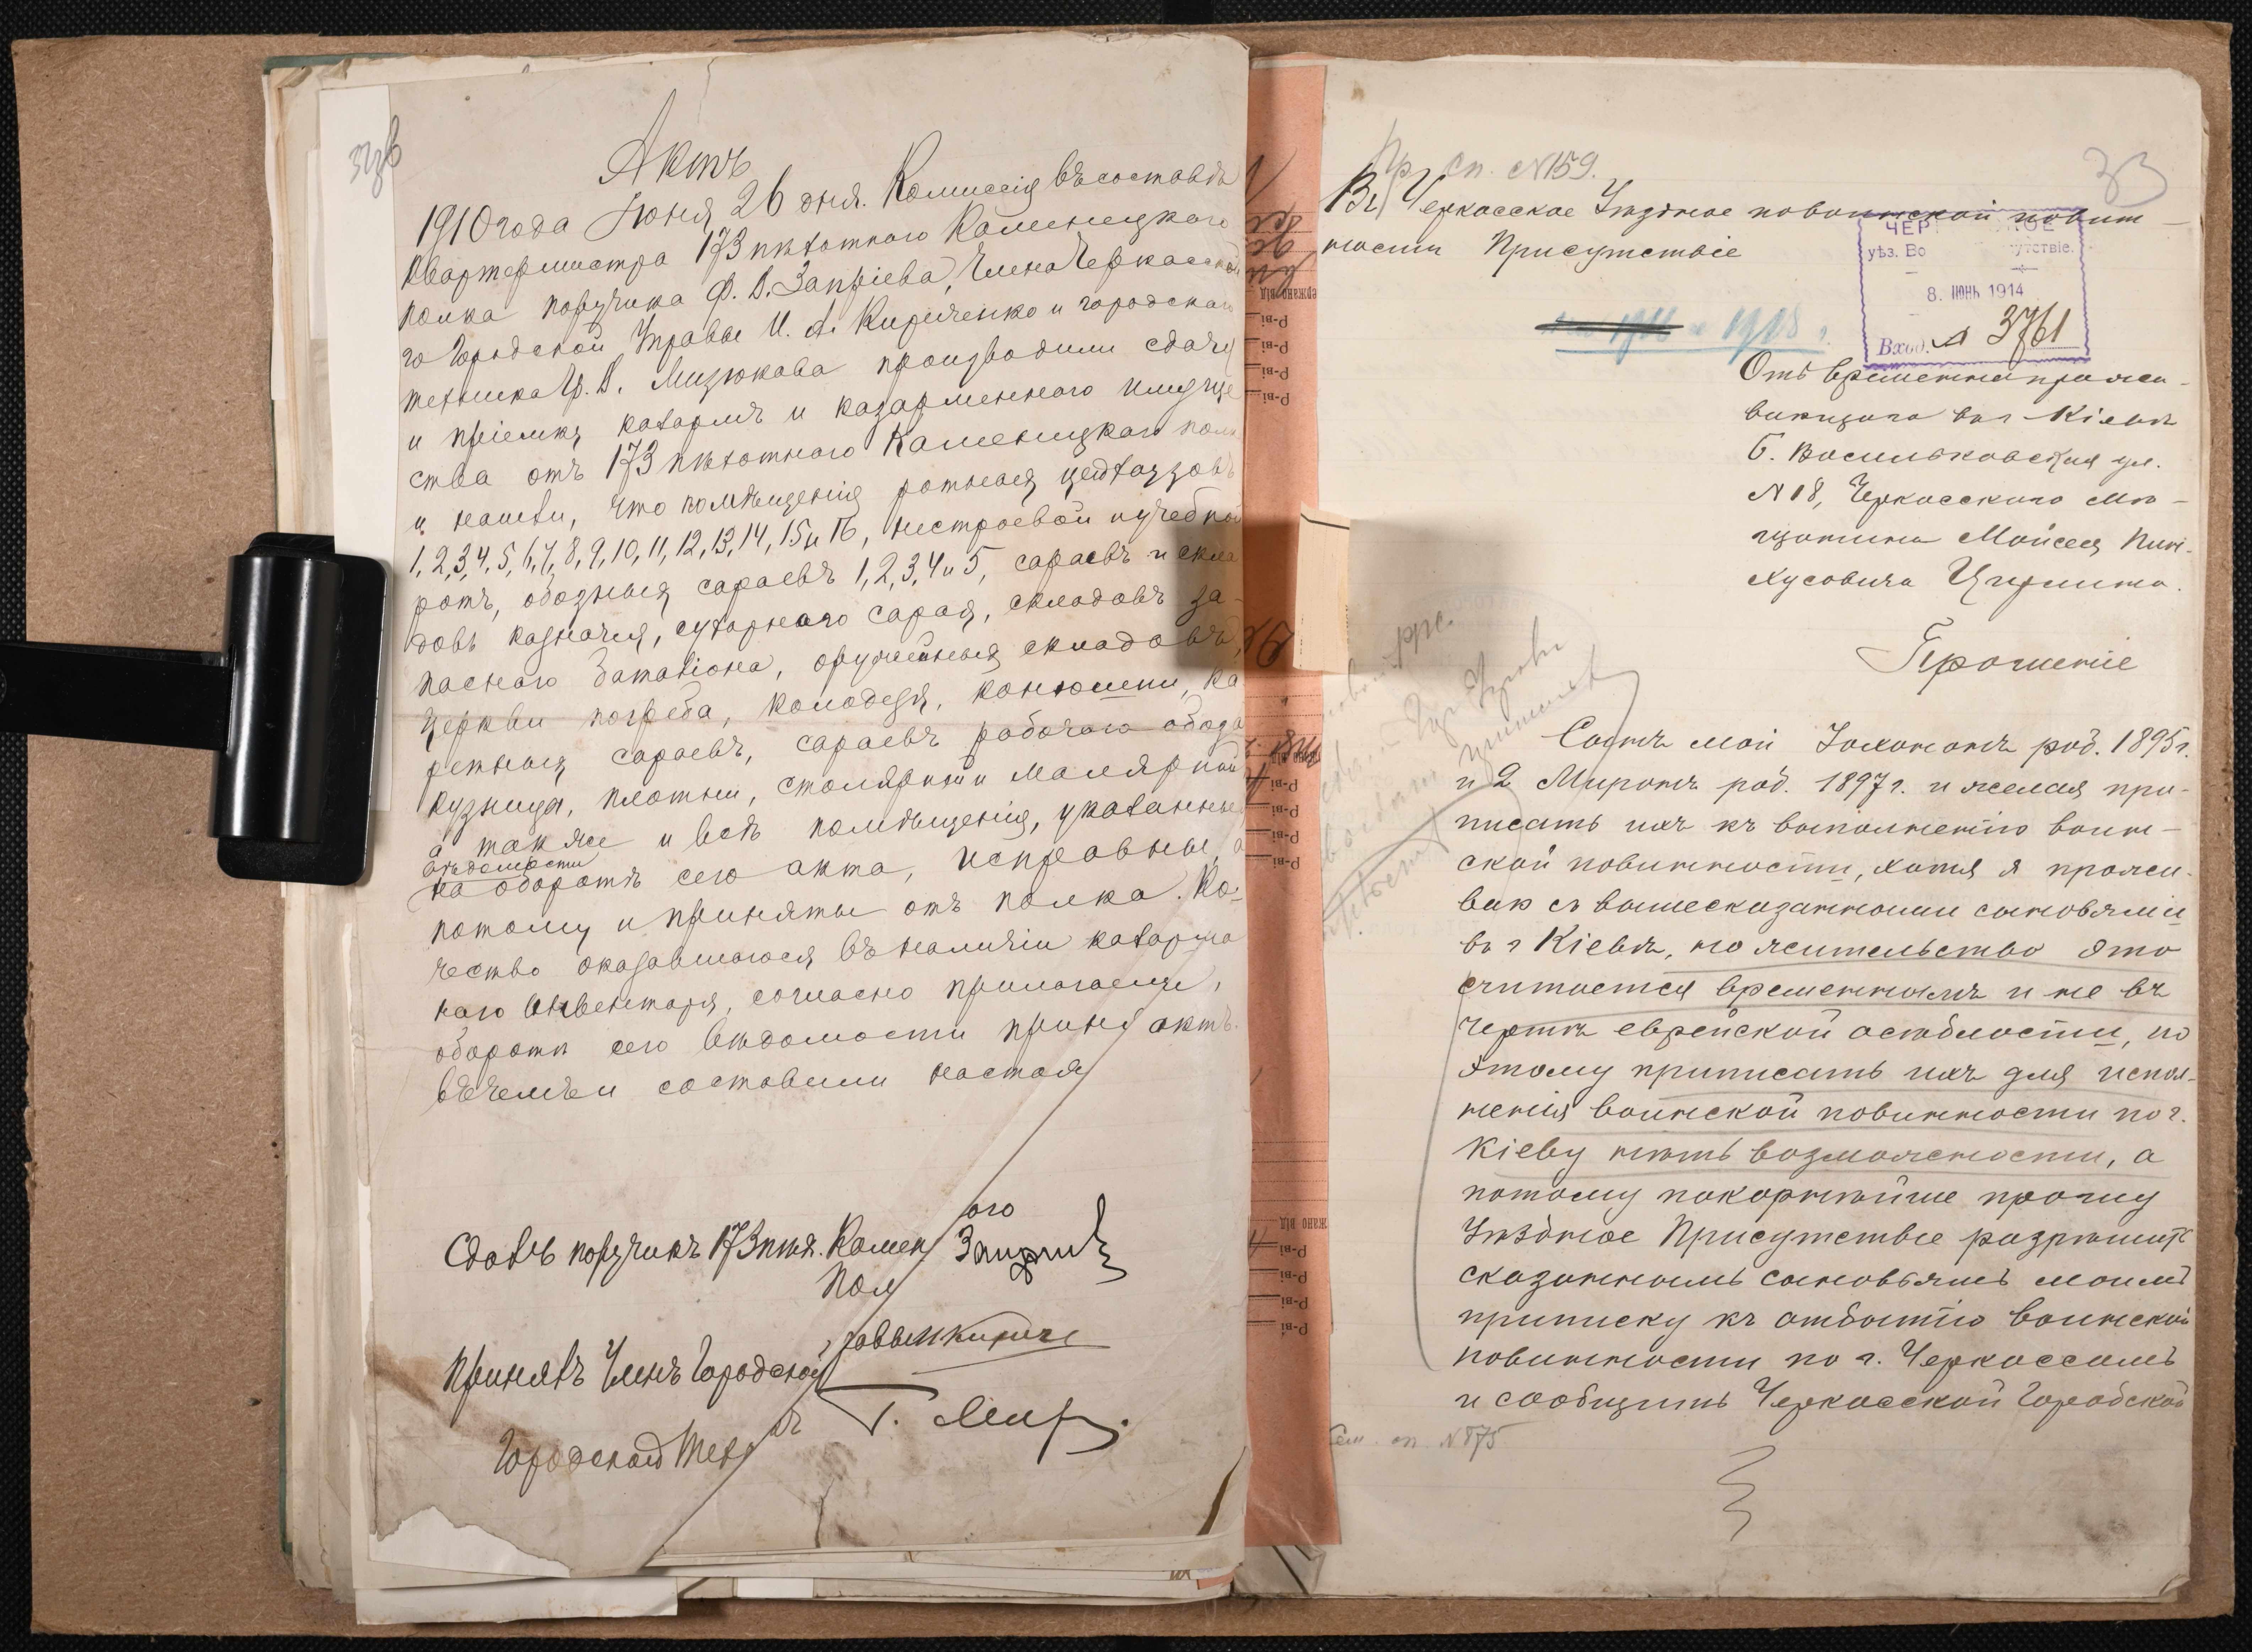 Актъ
1910 года Іюня 26 дня. Комиссія въ составѣ
Квартермистра 173 пѣхотнаго Каменецкаго
полка поручика Ф. В. Запріева, Члена Черкасска
го Городской Управы И. А. Кириченко и городского
техника Г. В. Мизюкова производили сдачу
и пріемку казармъ и казарменнаго имуще
ства отъ 173 пѣхотнаго Каменецкаго полк
и нашли, что помѣщенія ротныхъ цейхаузовъ
1, 2, 3, 4, 5, 6, 7, 8, 9, 10, 11, 12, 13, 14, 15 и 16, нестроевой и учебной
ротъ, обозныхъ сараевъ 1, 2, 3, 4 и 5, сараевъ и скла
довъ казначея, сухарнаго сарая, складовъ за-
паснаго баталіона, оружейныхъ складовъ,
Церкви погреба, колодезя, конюшни, ка
ретныхъ сараевъ, сараевъ рабочаго обоза
кузница, плотни, столярной и малярной
а также и всѣ помѣщенія, указанные
вѣдомости
на оборотѣ сего акта, исправны, а
потому и приняты отъ полка. Ко-
чество оказавшагося въ наличіи казарме
наго инвентаря, согласно прилагаемой,
оборотѣ сего вѣдомости
въ чемъ и составили настоя актъ.
Сдалъ поручикъ 173 пѣх. Камен ого
Пол
Принялъ Членъ Городской
Городской Тех
Пр. сп. №159.
33
Въ Черкасское Уѣздное по воинской повин-
ности Присутствіе
ЧЕР КОЕ
уѣз. Во утствіе.
8. ІЮНЬ 1914
Вход. № 3761
1918 г.
Отъ временно прожи-
вающаго въ г. Кіевѣ
Б. Васильковская ул.
№ 18, Черкасскаго мѣ-
щанина Мойсея Пин-
хусовича Цирлина.
Прошеніе
Сынъ мой Золомонъ род. 1895 г.
и 2 Миронъ род. 1897 г. и желая при-
писать ихъ къ выполненію воин-
ской повинности, хотя я прожи-
ваю съ вышесказанными сыновьями
въ г Кіевѣ, но жительство это
считается временнымъ и не въ
чертѣ еврейской осѣдлости, по
этому приписать ихъ для испол-
ненія воинской повинности по г.
Кіеву нѣтъ возможности, а
потому покорнѣйше прошу
Уѣздное Присутствіе разрѣшить
сказаннымъ сыновьямъ моимъ
приписку къ отбытію воинской
повинности по г. Черкассамъ
и сообщить Черкасской Городской
Сем. сп. №875